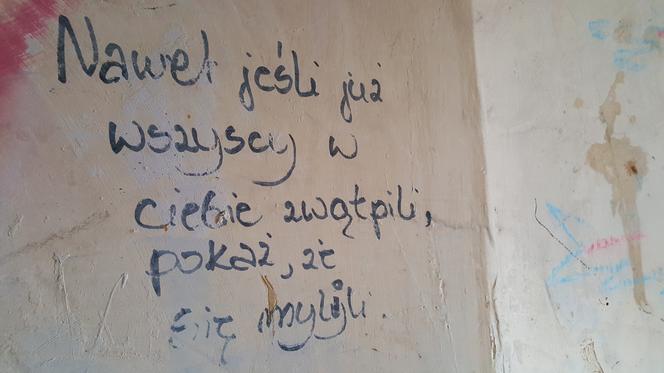 Nawet jeśli już
wszyscy w
ciebie zwątpili,
pokaż, że
się mylili.